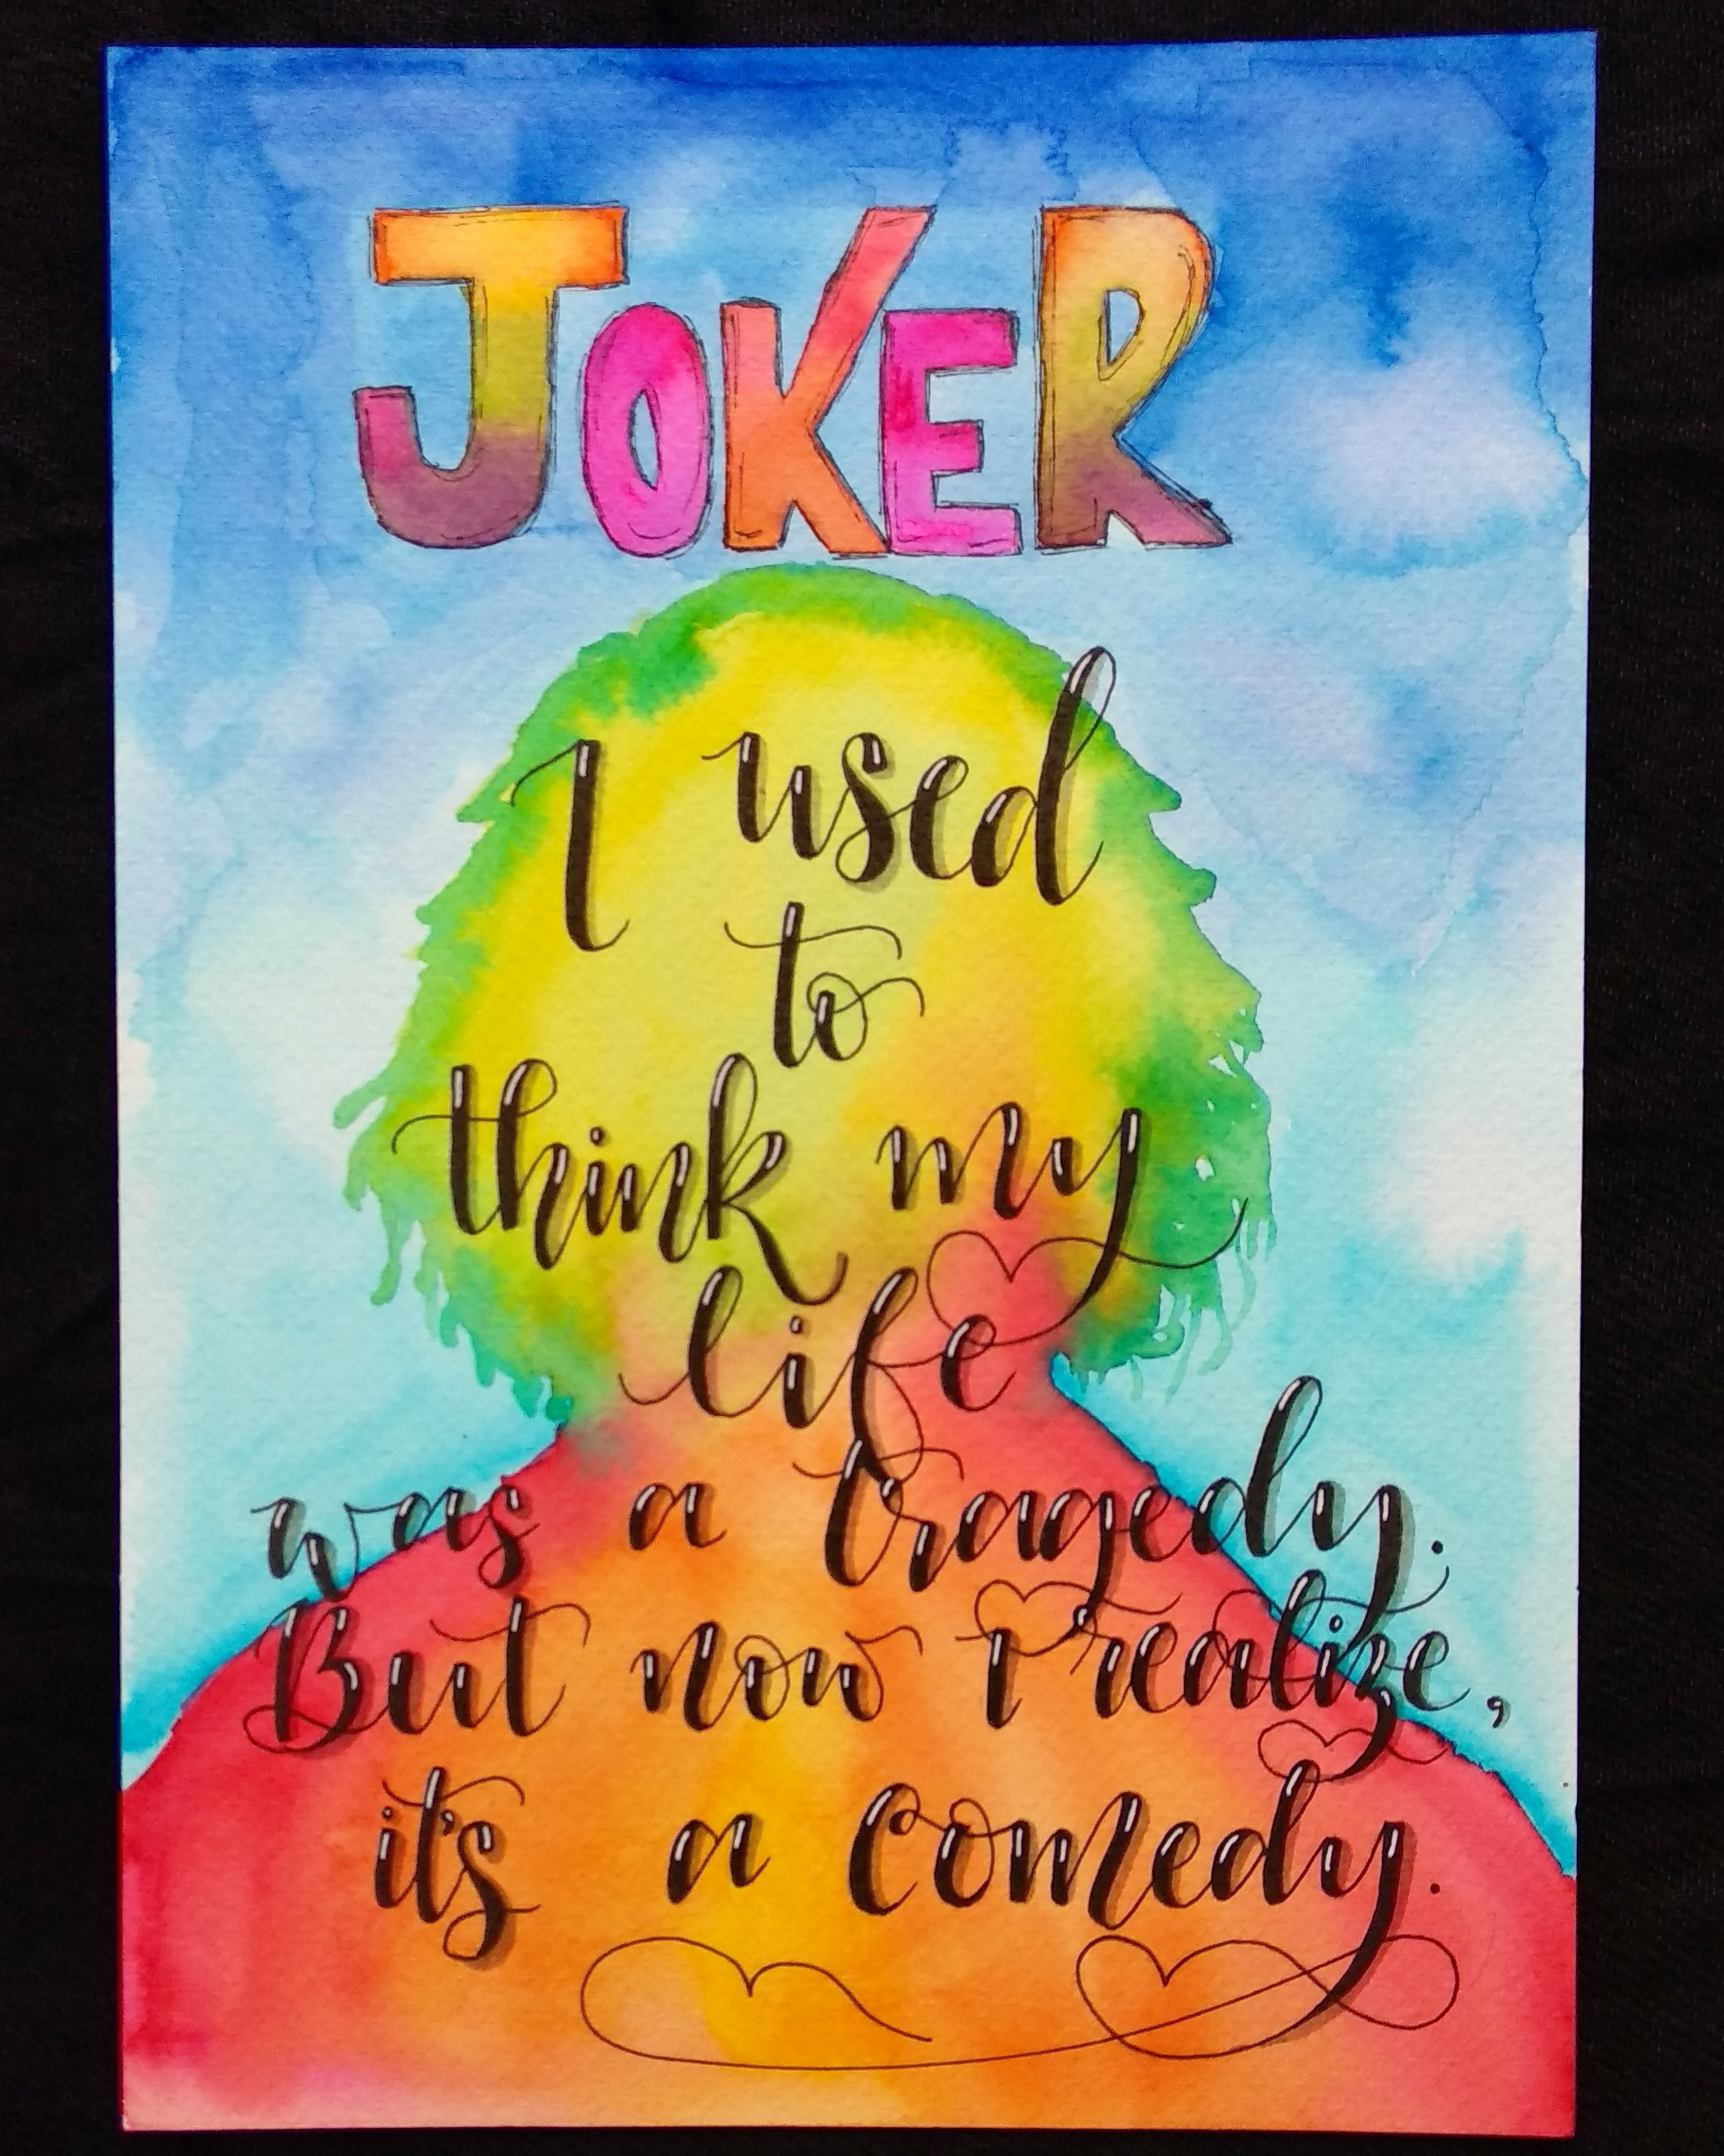 JOKER
I used
to
think my
life
was a tragedy.
But now I realize,
it's a comedy.